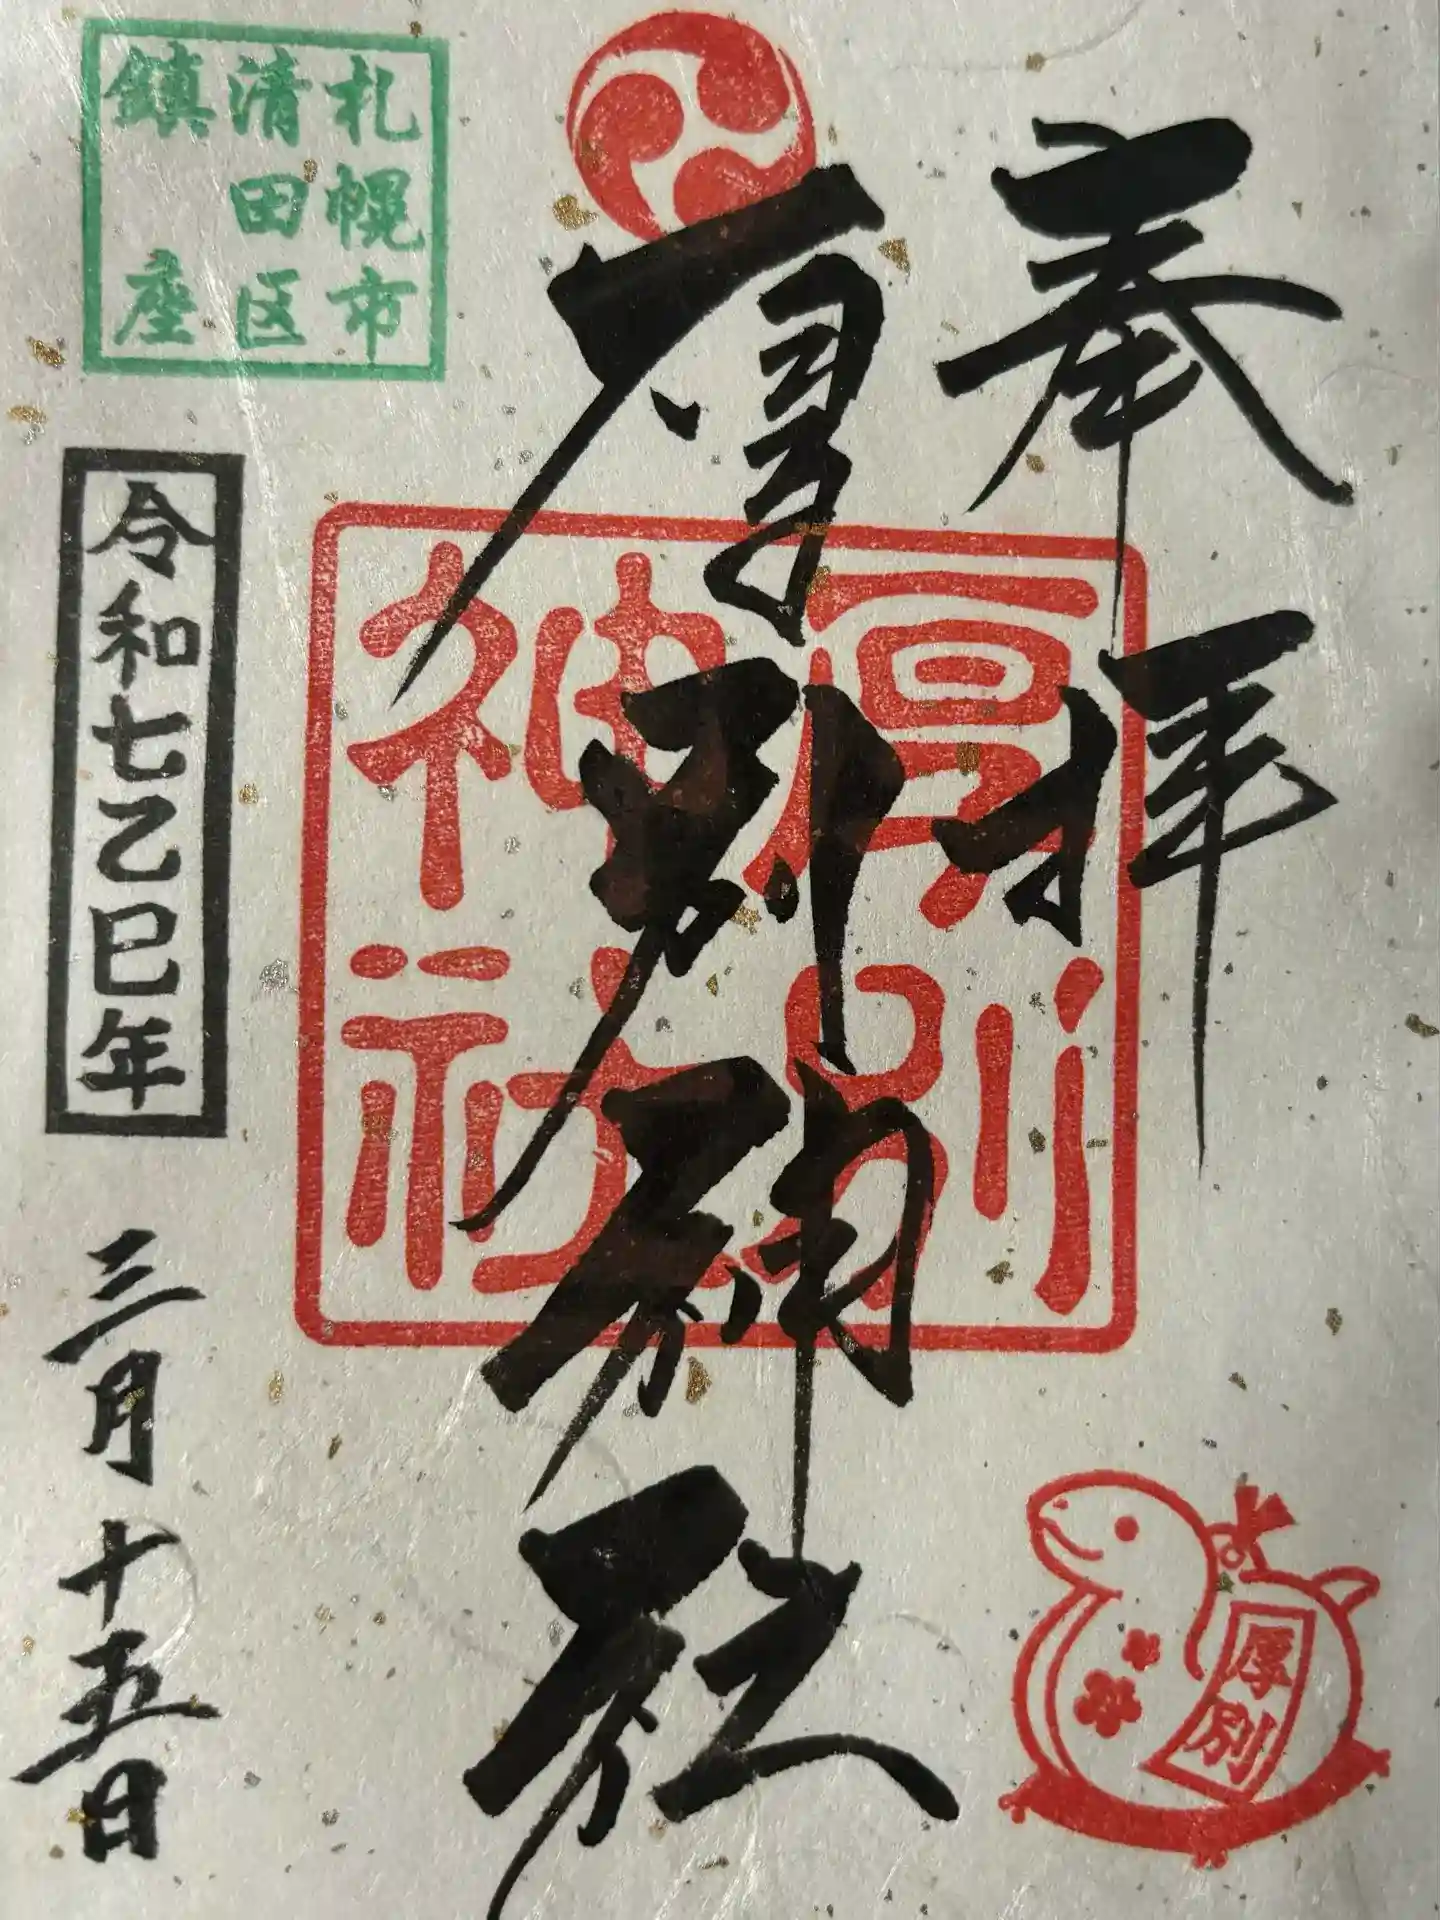 奉拝
厚別神社
厚別神社
札幌市
清田区
鎮座
令和七乙巳年
三月十五日
厚別